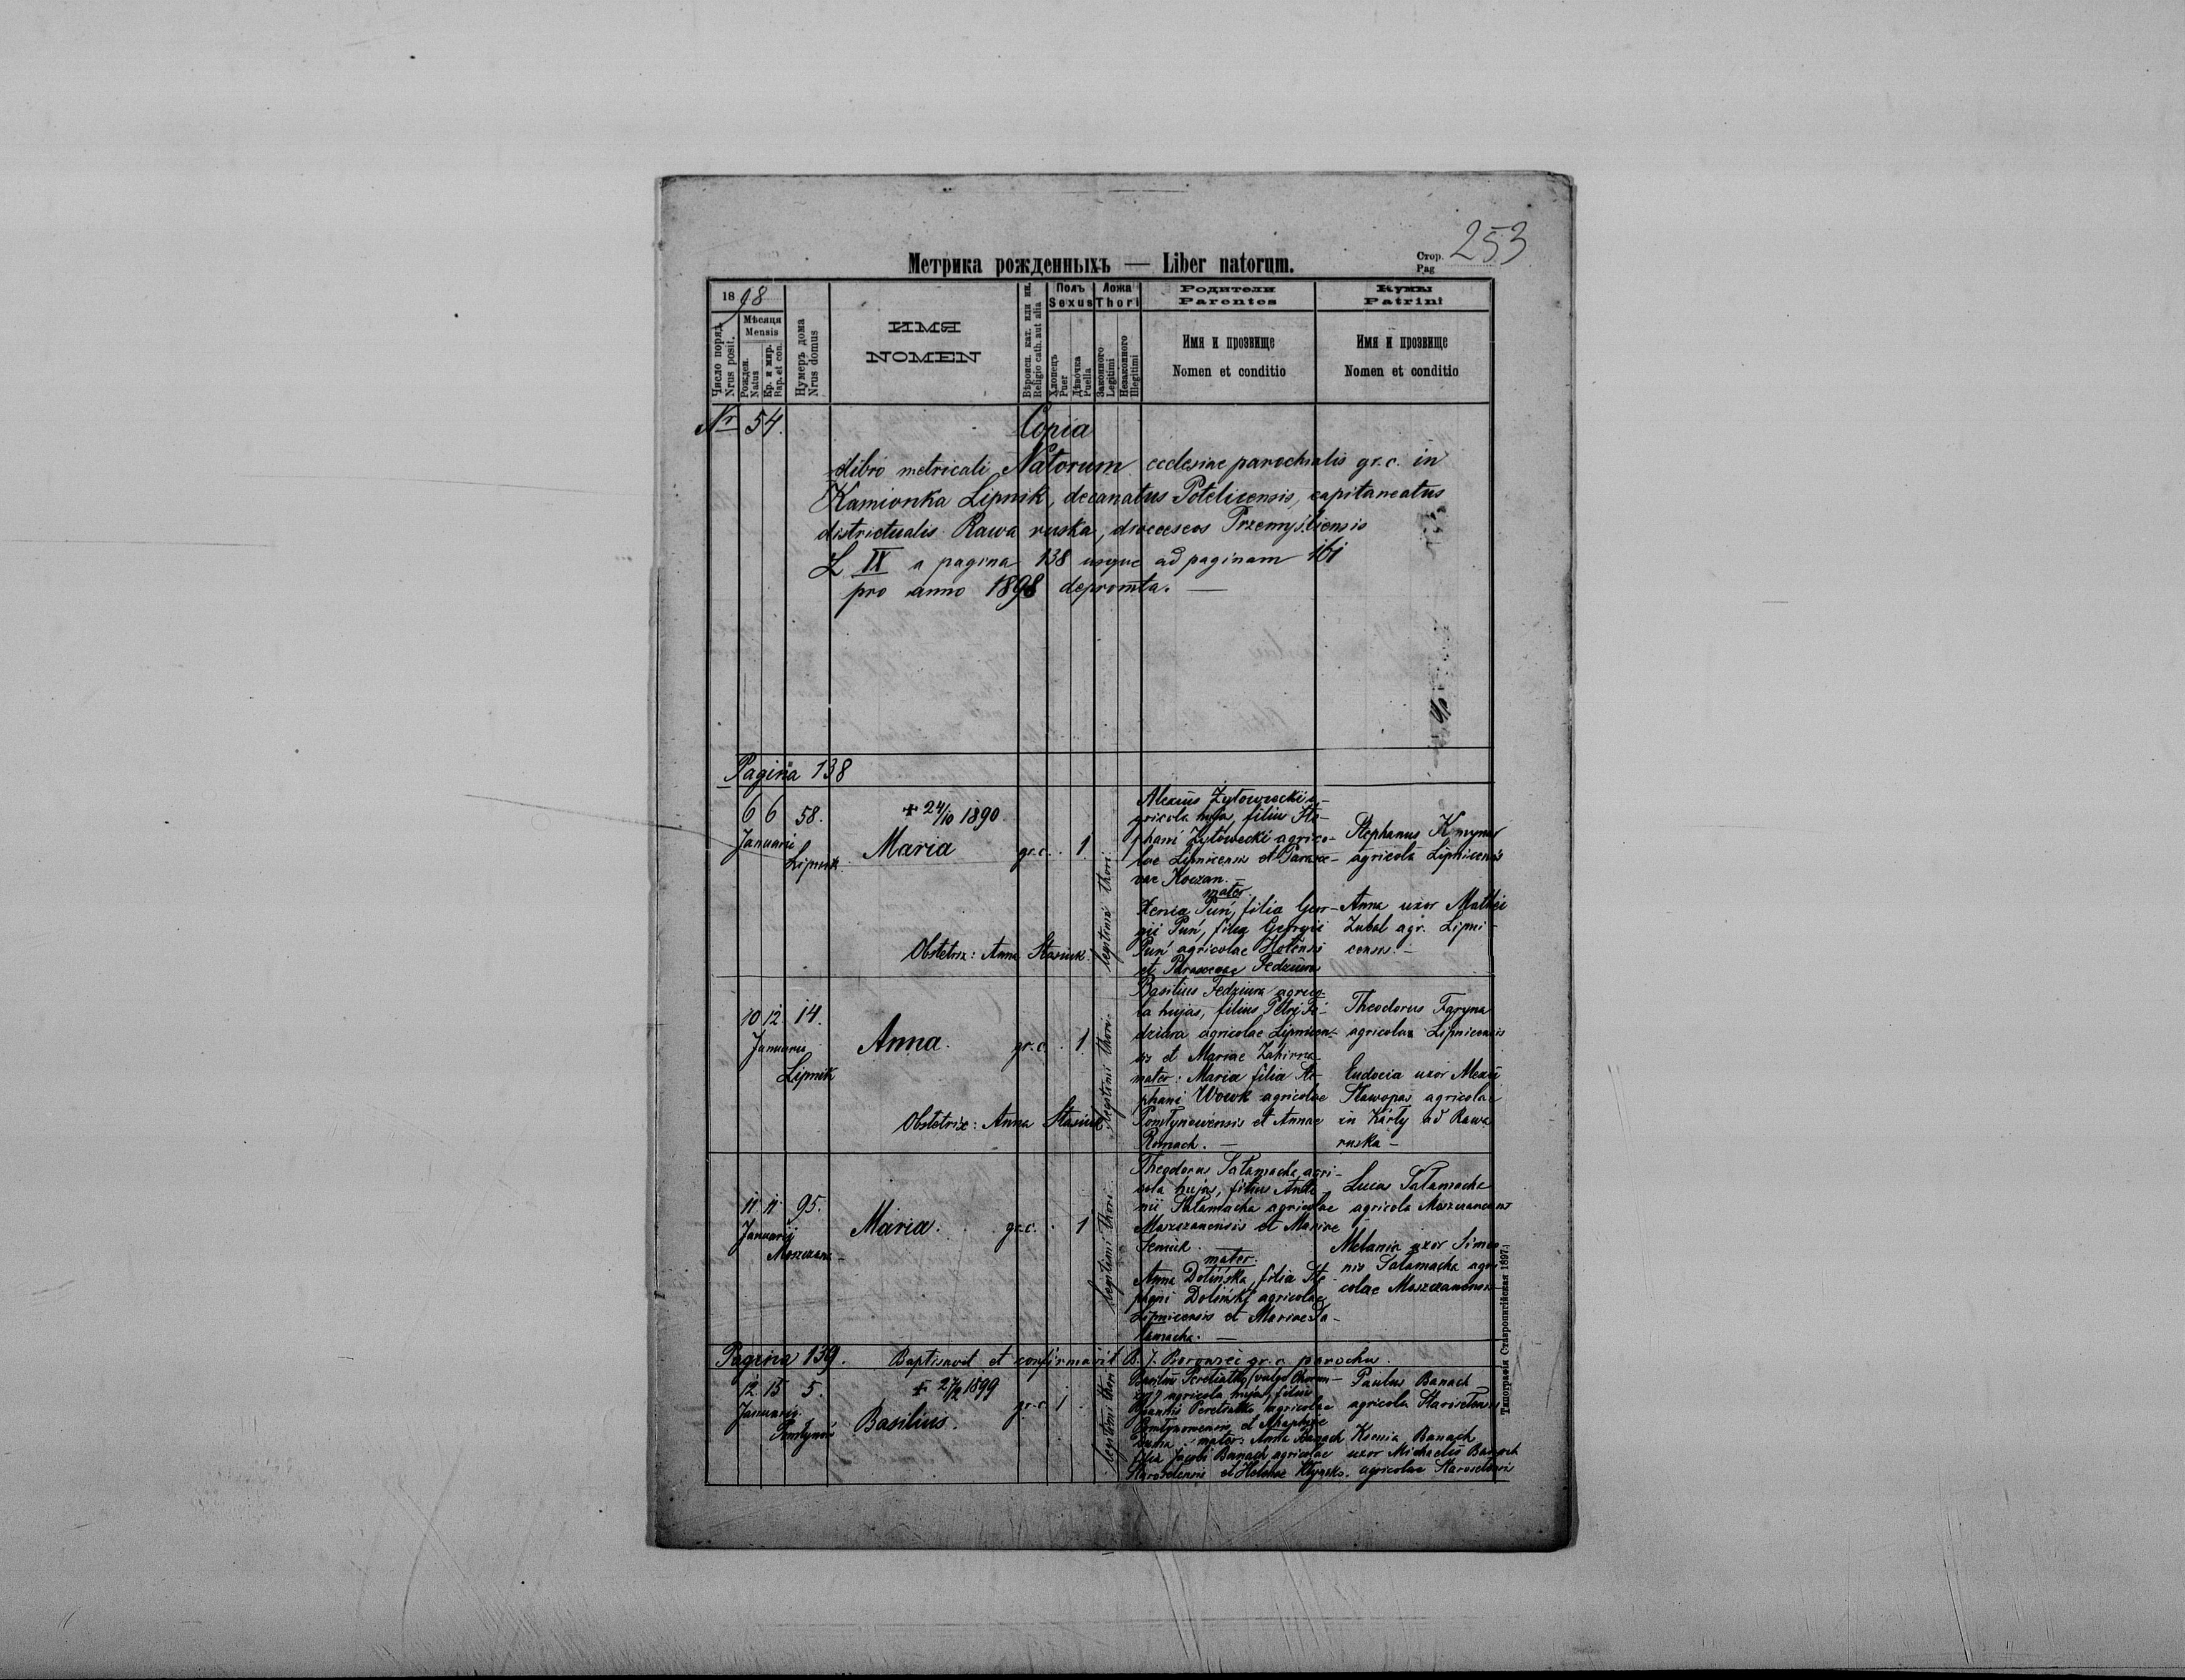 253
Метрика рожденныхъ — Liber natorum.
Стор.
Pag
1898
Число поряд.
Nrus posit.
Мѣсяця
Mensis
Рожден.
Natus
Кр. и мир.
Bap. et con.
Нумеръ дома
Nrus domus
ИМЯ
NOMEN
Вѣроисп. кат. или ин.
Religio cath. aut alia
Полъ
Sexus
Хлопецъ
Puer
Дѣвочка
Puella
Ложа
Thori
Законного
Legitimi
Незаконного
Illegitimi
Родители
Parentes
Имя и прозвище
Nomen et conditio
Кумы
Patrini
Имя и прозвище
Nomen et conditio
Nr 54.
Copia
libro metricali Natorum ecclesiae parochialis gr. c. in
Kamionka Lipnik, decanatus Potelicensis, capitaneatus
districtualis Rawa ruska, dioeceseos Przemysliensis
L IX a pagina 138 usque ad paginam 161
pro anno 1898 depromta. —
Pagina 138
6 6 58.
Januarii
Lipnik
+ 24/10 1890
Maria
gr. c. 1
legitimi thori
Obstetrix: Anna Stasiuk
Alexius Żytowiecki a-
gricola hujas, filius Ste-
phani Żytowiecki agrico-
lae Lipnicensis et Parasce-
vae Koczan. —
mater.
Xenia Puń, filia Geor-
gii Puń, filia Georgii
Puń agricolae Hołensis
et Parascevae Fedziura
Stephanus Kmyner
agricola Lipnicensis
Anna uxor Mathei
Zubal agr. Lipni-
censis. —
10 12 14.
Januarii
Lipnik
Anna.
gr. c. 1
legitimi thori.
Obstetrix: Anna Stasiuk
Basilius Fedziura agrico-
la hujas, filius Petri Fe-
dziura agricolae Lipnicen-
sis et Mariae Zahirna
mater: Maria filia Ste-
phani Wowk agricolae
et Annae
Romach. —
Theodorus Faryna
agricola Lipnicensis
Eudocia uxor Alexii
Stawopas agricolae
in Kârty ad Rawa
ruska —
11 11 95.
Januarii
Moszczana —
Maria.
gr. c. 1
legitimi thori.
Theodorus Sałamacha, agri-
cola hujas, filius Anto-
nii Sałamacha agricolae
Moszczanensis et Mariae
mater.
Anna Dolińska, filia Ste-
phani Doliński agricolae
Lipnicensis et Mariae Sa-
łamacha. —
Lucas Sałamacha
agricola Moszczanensis
Melania uxor Simeo-
nis Sałamacha agri-
colae Moszczanensis
Pagina 139.
Baptisavit et confirmavit B. J. Borowiec gr. c. parochus.
12 15 5.
Januarii.
+ 27/2 1899
Basilius.
gr. c. 1
legitimi thori
Basilius Peretiatko (vulgo
agricola hujas, filius
Peretiatko agricolae
et Agaphiae
mater: Anna Banach
filia Jacobi Banach agricolae
Staroselensis et Helenae
Paulus Banach
agricola Staroselensis
Ksenia Banach
uxor Michaelis Banach
agricolae Staroselensis
Типографія Ставропигійская 1897.